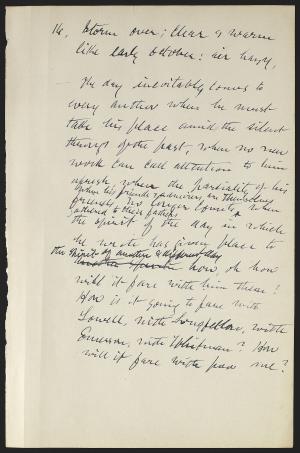 14. Storm over; clear & warm
like early October: air hazy.
— The day inevitably comes to
every author when he must
take his place amid the silent
throngs of the past, when no new
work can call attention to him
afresh, when the partiality of his
friends no longer counts, when
when his friends & admirers are themselves
gathered to their fathers,
the spirit of the day in which
he wrote has given place to
the spirit of another & different day
how, oh how
will it fare with him then?
How is it going to fare with
Lowell, with Longfellow, with
Emerson, with Whitman? How
will it fare with poor me?